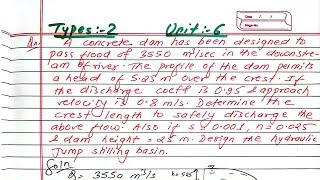 Types:-2 Unit:-6
Qn: A concrete dam has been designed to
pass flood of 3550 m³/sec in the downstre-
am of river. The profile of the dam permits
a head of 5.25 m over the crest. If
the discharge coeff is 0.95 & approach
velocity is 0.8 m/s. Determine the
crest length to safely discharge the
above flow. Also if s = 0.001, n = 0.025
& dam height = 25 m. Design the hydraulic
Jump stilling basin.
Soln
Q = 3550 m³/s